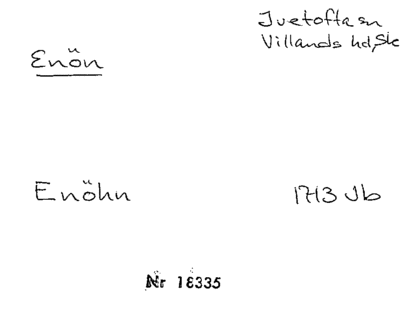 Ivetofta sn
Villands hd, Sk
Enön
Enöhn 1713 Jb
Nr 18335